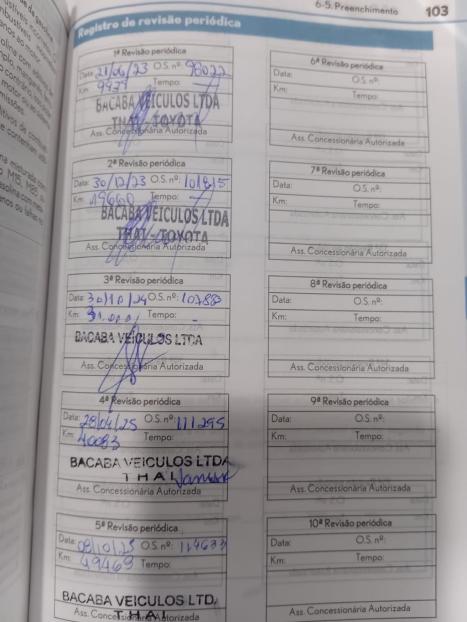 6-5. Preenchimento 103
Registro de revisão periódica
1ª Revisão periódica
Data: 21/06/23 O.S. nº: 98022
Km: Tempo:
BACABA VEICULOS LTDA
THAI - TOYOTA
Ass. Concessionária Autorizada
2ª Revisão periódica
Data: 30/12/23 O.S. nº: 101815
Km: 19660 Tempo:
BACABA VEICULOS LTDA
THAI - TOYOTA
Ass. Concessionária Autorizada
3ª Revisão periódica
Data: 30/10/24 O.S. nº:
Km: Tempo:
BACABA VEICULOS LTDA
Ass. Concessionária Autorizada
4ª Revisão periódica
Data: 28/04/25 O.S. nº: 111295
Km: 40083 Tempo:
BACABA VEICULOS LTDA
THAI
Ass. Concessionária Autorizada
5ª Revisão periódica
Data: 08/10/25 O.S. nº: 114633
Km: 49463 Tempo:
BACABA VEICULOS LTDA
THAI
Ass. Concessionária Autorizada
6ª Revisão periódica
Data: O.S. nº:
Km: Tempo:
Ass. Concessionária Autorizada
7ª Revisão periódica
Data: O.S. nº:
Km: Tempo:
Ass. Concessionária Autorizada
8ª Revisão periódica
Data: O.S. nº:
Km: Tempo:
Ass. Concessionária Autorizada
9ª Revisão periódica
Data: O.S. nº:
Km: Tempo:
Ass. Concessionária Autorizada
10ª Revisão periódica
Data: O.S. nº:
Km: Tempo:
Ass. Concessionária Autorizada